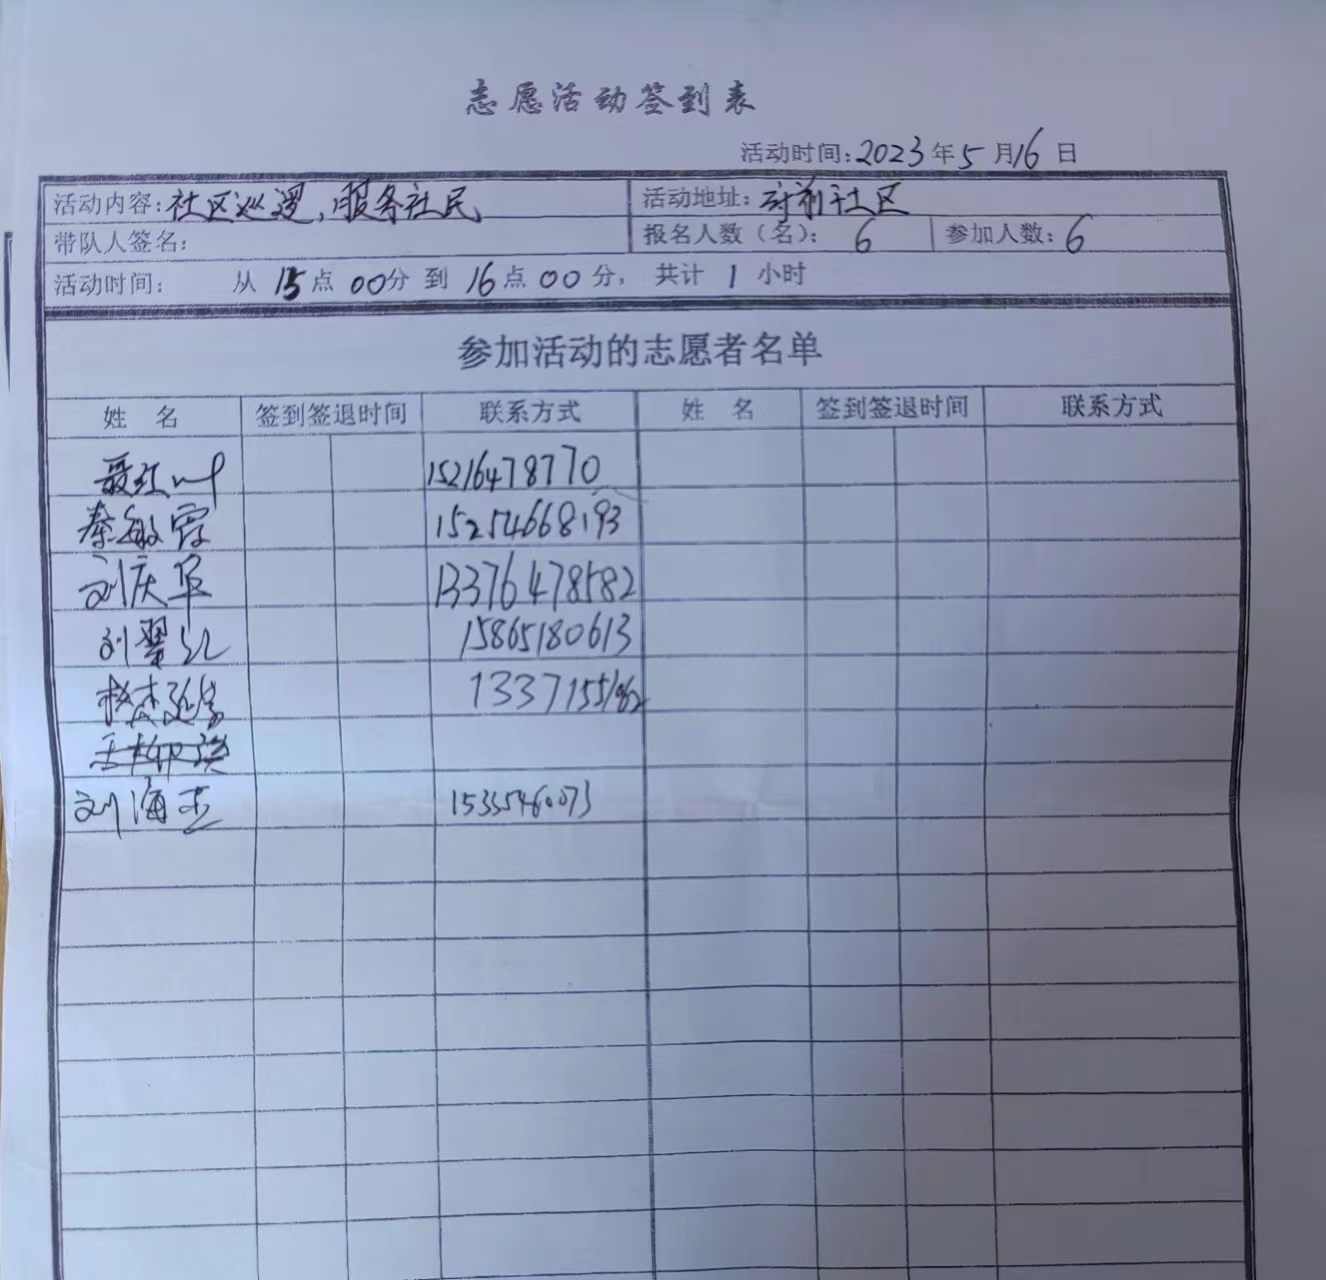 志愿活动签到表
活动时间:2023年5月16日
活动内容:社区巡逻,服务社民 活动地址:府前社区
带队人签名: 报名人数(名): 6 参加人数:6
活动时间: 从 15点 00分 到 16点 00分, 共计 1 小时
参加活动的志愿者名单
姓 名 签到签退时间 联系方式 姓 名 签到签退时间 联系方式
15216478770
秦敏霞 15254668193
刘庆华 13376478582
刘翠红 15865180613
1337155
刘海杰 15335460073